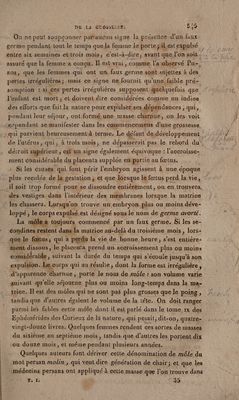 DE LA GROSSESSE. 545
On ne peut soupçonner par aucun signe la présence d'un faux
germe pendant tout le temps que la femme le porte; il est expulsé
entre six semaines et trois mois, c'est-à-dire, avant que l'on soit
assuré que la femme a conçu. Il est vrai, comme l'a observé Puzos,
que les femmes qui ont un faux germe sont sujettes à des
pertes irrégulières; mais ce signe ne fournit qu'une faible présomption
: si ces pertes irrégulières supposent quelquefois que
l'enfant est mort, et doivent être considérées comme un indice
des efforts que fait la nature pour expulser ses dépendances, qui,
pendant leur séjour, ont formé une masse charnue, on les voit
cependant se manifester dans les commencemens d'une grossesse
qui parvient heureusement à terme. Le défaut de développement
de l'utérus, qui, à trois mois, ne dépasserait pas le rebord du
détroit supérieur, est un signe également équivoque : l'accroissement
considérable du placenta supplée en partie au fœtus.
Si les causes qui font périr l'embryon agissent à une époque
plus reculée de la gestation, et que lorsque le fœtus perd la vie,
il soit trop formé pour se dissoudre entièrement, on en trouvera
des vestiges dans l'intérieur des membranes lorsque la matrice
les chassera. Lorsqu'on trouve un embryon plus ou moins développé,
le corps expulsé est désigné sous le nom de germe avorté.
La môle a toujours commencé par un faux germe. Si les secondines
restent dans la matrice au-delà du troisième mois, lorsque
le fœtus, qui a perdu la vie de bonne heure, s'est entièrement
dissous, le placenta prend un accroissement plus ou moins
considérable, suivant la durée du temps qui s'écoule jusqu'à son
expulsion. Le corps qui en résulte, dont la forme est irrégulière,
d'apparence charnue, porte le nom de môle : son volume varie
suivant qu'elle séjourne plus ou moins long-temps dans la matrice.
Il est des môles qui ne sont pas plus grosses que le poing,
tandis que d'autres égalent le volume de la tête. On doit ranger
parmi les fables cette môle dont il est parlé dans le tome IX des
Ephémérides des Curieux de la nature, qui pesait, dit-on, quatre-vingt-douze
livres. Quelques femmes rendent ces sortes de masses
du sixième au septième mois, tandis que d'autres les portent dix
ou douze mois, et même pendant plusieurs années.
Quelques auteurs font dériver cette dénomination de môle du
mot persan molin, qui veut dire génération de chair; et que les
médecins persans ont appliqué à cette masse que l'on trouve dans
T. I. 35